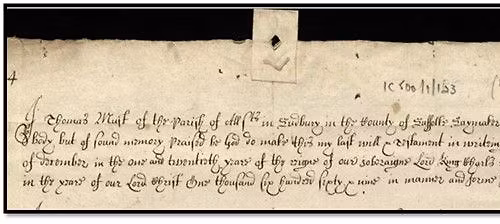 4
IC 500/1/133
I Thomas Must of the Parish of All Sts in Sudbury in the County of Suffolke Saymaker
body but of sound memory praised be God do make this my last will & Testament in writein
of december in the one and twentieth yeare of the reigne of our soveraigne Lord King Charls
in the yeare of our Lord Christ One thousand six hundred sixty & nine in manner and forme